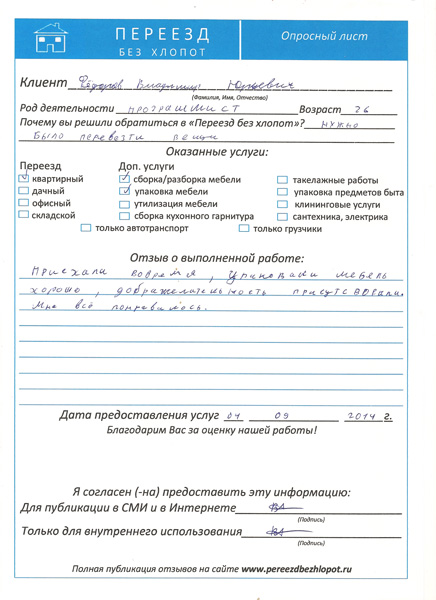 ПЕРЕЕЗД
БЕЗ ХЛОПОТ
Опросный лист
Клиент Фёдоров Владимир Юрьевич
(Фамилия, Имя, Отчество)
Род деятельности программист Возраст 26
Почему вы решили обратиться в «Переезд без хлопот»? нужно
было перевезти вещи
Оказанные услуги:
Переезд Доп. услуги
квартирный сборка/разборка мебели такелажные работы
дачный упаковка мебели упаковка предметов быта
офисный утилизация мебели клининговые услуги
складской сборка кухонного гарнитура сантехника, электрика
только автотранспорт только грузчики
Отзыв о выполненной работе:
Приехали вовремя, упаковали мебель
хорошо, доброжелательность присутствовали.
Мне всё понравилось.
Дата предоставления услуг 09 2014 г.
Благодарим Вас за оценку нашей работы!
Я согласен (-на) предоставить эту информацию:
Для публикации в СМИ и в Интернете
(Подпись)
Только для внутреннего использования
(Подпись)
Полная публикация отзывов на сайте www.pereezdbezhlopot.ru